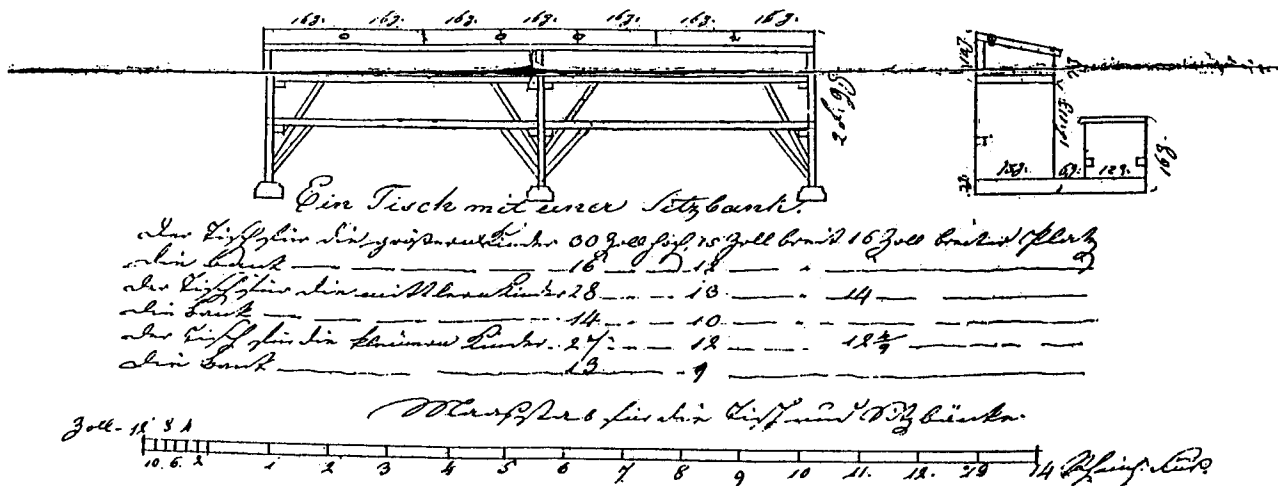 16z. 16z. 16z. 16z. 16z. 16z. 16z.
15z. 6z. 12z. 16z.
Ein Tisch mit einer Sitzbank.
der Tisch für die größern Kinder 30 Zoll hoch, 15 Zoll breit 16 Zoll breiter Platz
die Bank — 16 — 12 — " —
der Tisch für die mittlern Kinder 28 — 13 — 14 —
die Bank — 14 — 10 — " —
der Tisch für die kleinern Kinder 27 — 12 — 12
die Bank — 13 — 9 —
Maaßstab für die Tisch und Sitzbänke.
Zoll 12 8 4
10. 6. 2 1 2 3 4 5 6 7 8 9 10 11. 12. 13 14 Rheinl. Fuß.